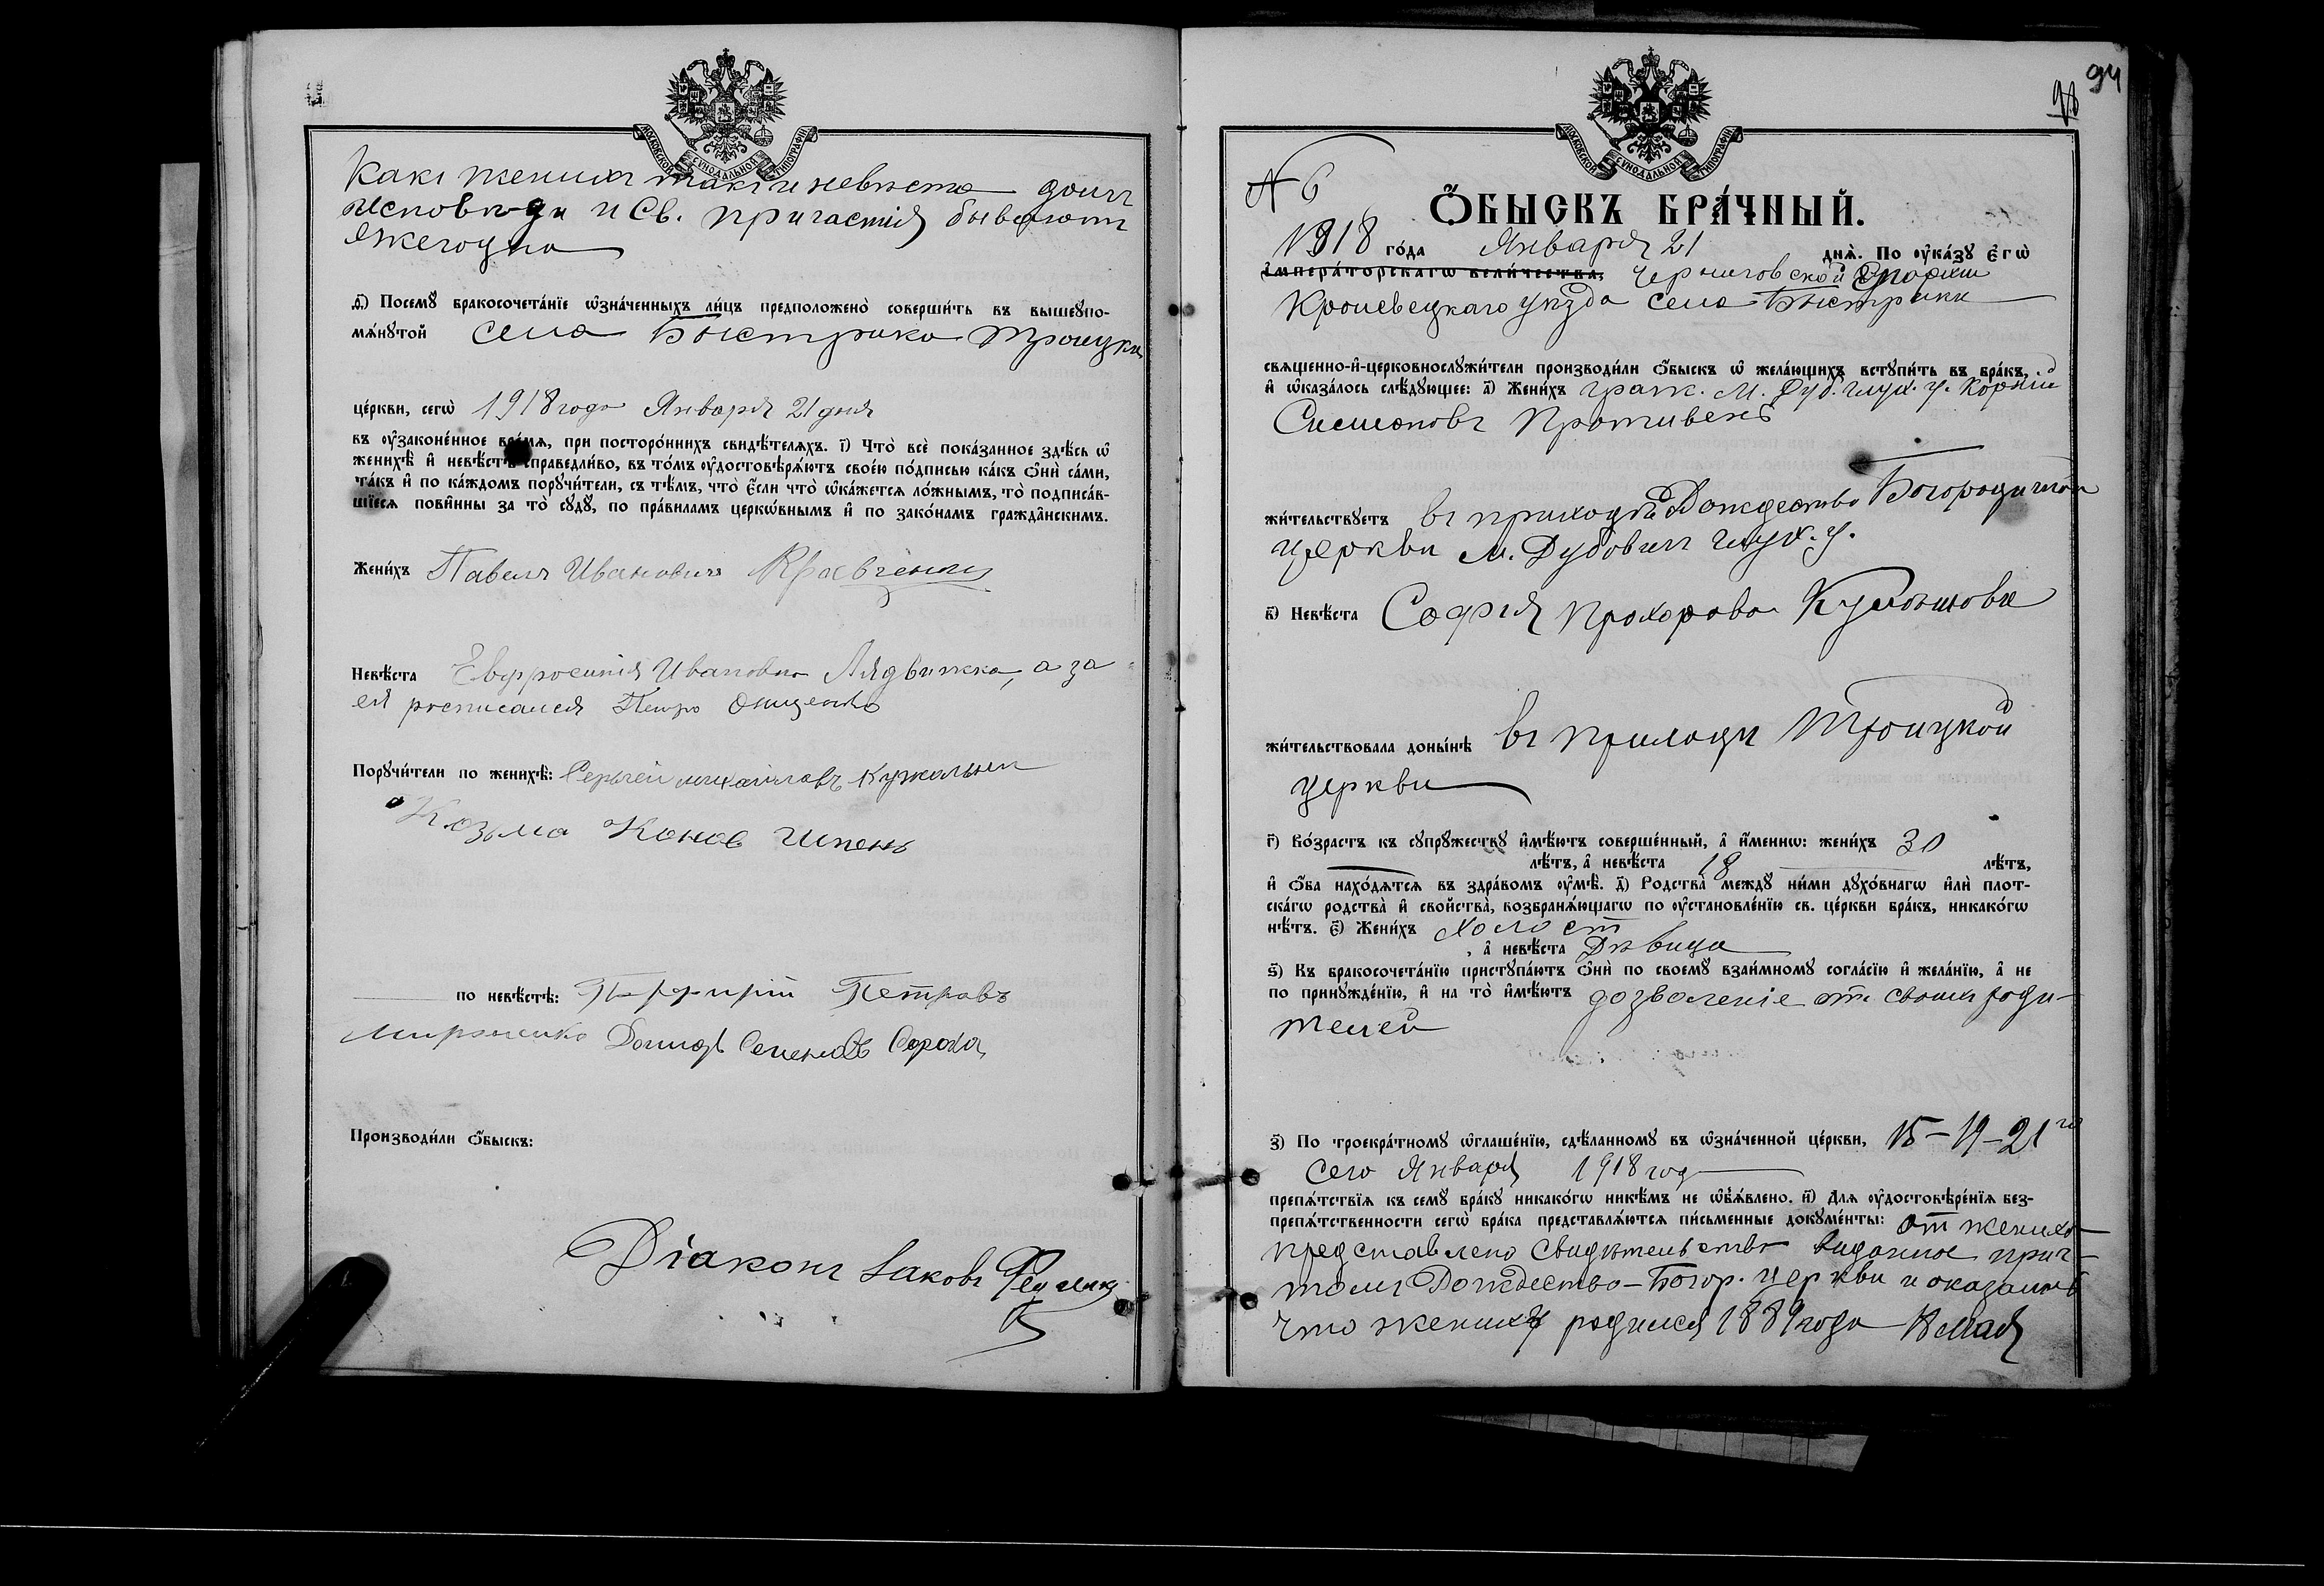 МОСКОВСКОЙ СУНОДАЛЬНОЙ ТИПОГРАФІИ
Какъ женихъ такъ и невѣста долгъ
Исповѣди и Св. причастія бываютъ
Ежегодно
ѳ) Посемꙋ бракосочета́нїе ѡ҆зна́ченныхъ ли́цъ предположено̀ соверши́ть въ вышеупо-
мѧ́нꙋтой села Быстрика Троицкой
це́ркви, сегѡ̀ 1918 года Января 21 дня
въ оу҆законе́нное вре́мѧ, при посторо́ннихъ свидѣ́телѧхъ. і) Что̀ всѐ пока́занное здѣ́сь ѡ҆
женихѣ̀ и҆ невѣ́стѣ справедли́во, въ то́мъ оу҆достовѣрѧ́ютъ свое́ю по́дписью ка́къ ѻ҆нѝ са́ми,
та́къ и҆ по ка́ждомъ порꙋчи́тели, съ тѣ́мъ, что̀ є҆́сли что̀ ѡ҆ка́жется ло́жнымъ, то̀ подписа́в-
шїеся пови́нны за то̀ сꙋдꙋ̀, по пра́виламъ церкѡ́внымъ и҆ по зако́намъ гражда̂нскимъ.
Жени́хъ Павелъ Ивановичъ Кравченко
Невѣ́ста Евфросинія Ивановна Лядвижка, а за
ея росписался Петро Онищенко
Порꙋчи́тели по женихѣ̀: Сергѣй михайловъ
Козьма Конов
по невѣ́стѣ: Порфирій Петровъ
Мироненко Семеновъ Сороха
Производи́ли ѻ҆́быскъ:
Діаконъ Іаковъ
94
МОСКОВСКОЙ СУНОДАЛЬНОЙ ТИПОГРАФІИ
N 6
Ѻ҆́БЫСКЪ БРА́ЧНЫЙ.
1918 го́да Января 21 днѧ̀. По оу҆ка́зꙋ є҆гѡ̀
і҆мпера́торскагѡ вели́чества, Черниговской Епархіи
Кролевецкаго уѣзда села Быстрика
свѧще́нно-и҆-церковнослꙋжи́тели производи́ли ѻ҆́быскъ ѡ҆ жела́ющихъ встꙋпи́ть въ бра́къ,
и҆ ѡ҆каза́лось слѣ́дꙋющее: а) Жени́хъ граж. М. Дуб. глух. у. Корній
Симоновъ Противень
жи́тельствꙋетъ въ приходѣ Рождество Богородичной
церкви м. Дубовичъ глух. у.
в) Невѣ́ста Софія Прохорова
жи́тельствовала доны́нѣ въ приходѣ Троицкой
церкви
г) Во́зрастъ къ сꙋпрꙋ́жествꙋ и҆мѣ́ютъ соверше́нный, а҆ и҆́меннѡ: жени́хъ 30
лѣ́тъ, а҆ невѣ́ста 18 лѣ́тъ,
и҆ ѻ҆́ба нахо́дѧтсѧ въ здра́вомъ оу҆мѣ̀. д) Родства̀ междꙋ̀ ни́ми дꙋхо́внагѡ и҆лѝ плот-
ска́гѡ родства̀ и҆ свойства̀, возбранѧ́ющагѡ по оу҆становле́нїю св. це́ркви бра́къ, никако́гѡ
нѣ́тъ. є) Жени́хъ холост
, а҆ невѣ́ста Дѣвица
ѕ) Къ бракосочета́нїю пристꙋпа́ютъ ѻ҆нѝ по своемꙋ̀ взаи́мномꙋ согла́сїю и҆ жела́нїю, а҆ не
по принꙋжде́нїю, и҆ на то̀ и҆мѣ́ютъ дозволеніе отъ своихъ роди-
телей
з) По троекра́тномꙋ ѡ҆глаше́нїю, сдѣ́ланномꙋ въ ѡ҆зна́ченной це́ркви, 15-19-21го
сего Января 1918 год
препѧ́тствїѧ къ семꙋ̀ бра́кꙋ никако́гѡ никѣ́мъ не ѡ҆б̾ѧ́влено. и) Длѧ оу҆достовѣре́нїѧ без-
препѧ́тственности сегѡ̀ бра́ка представлѧ́ютсѧ пи́сьменные докꙋме́нты: от жениха
представлено свидѣтельство виданное прич-
томъ Рождество-Богор. церкви и оказалось
что женихъ родился 1889 года мая